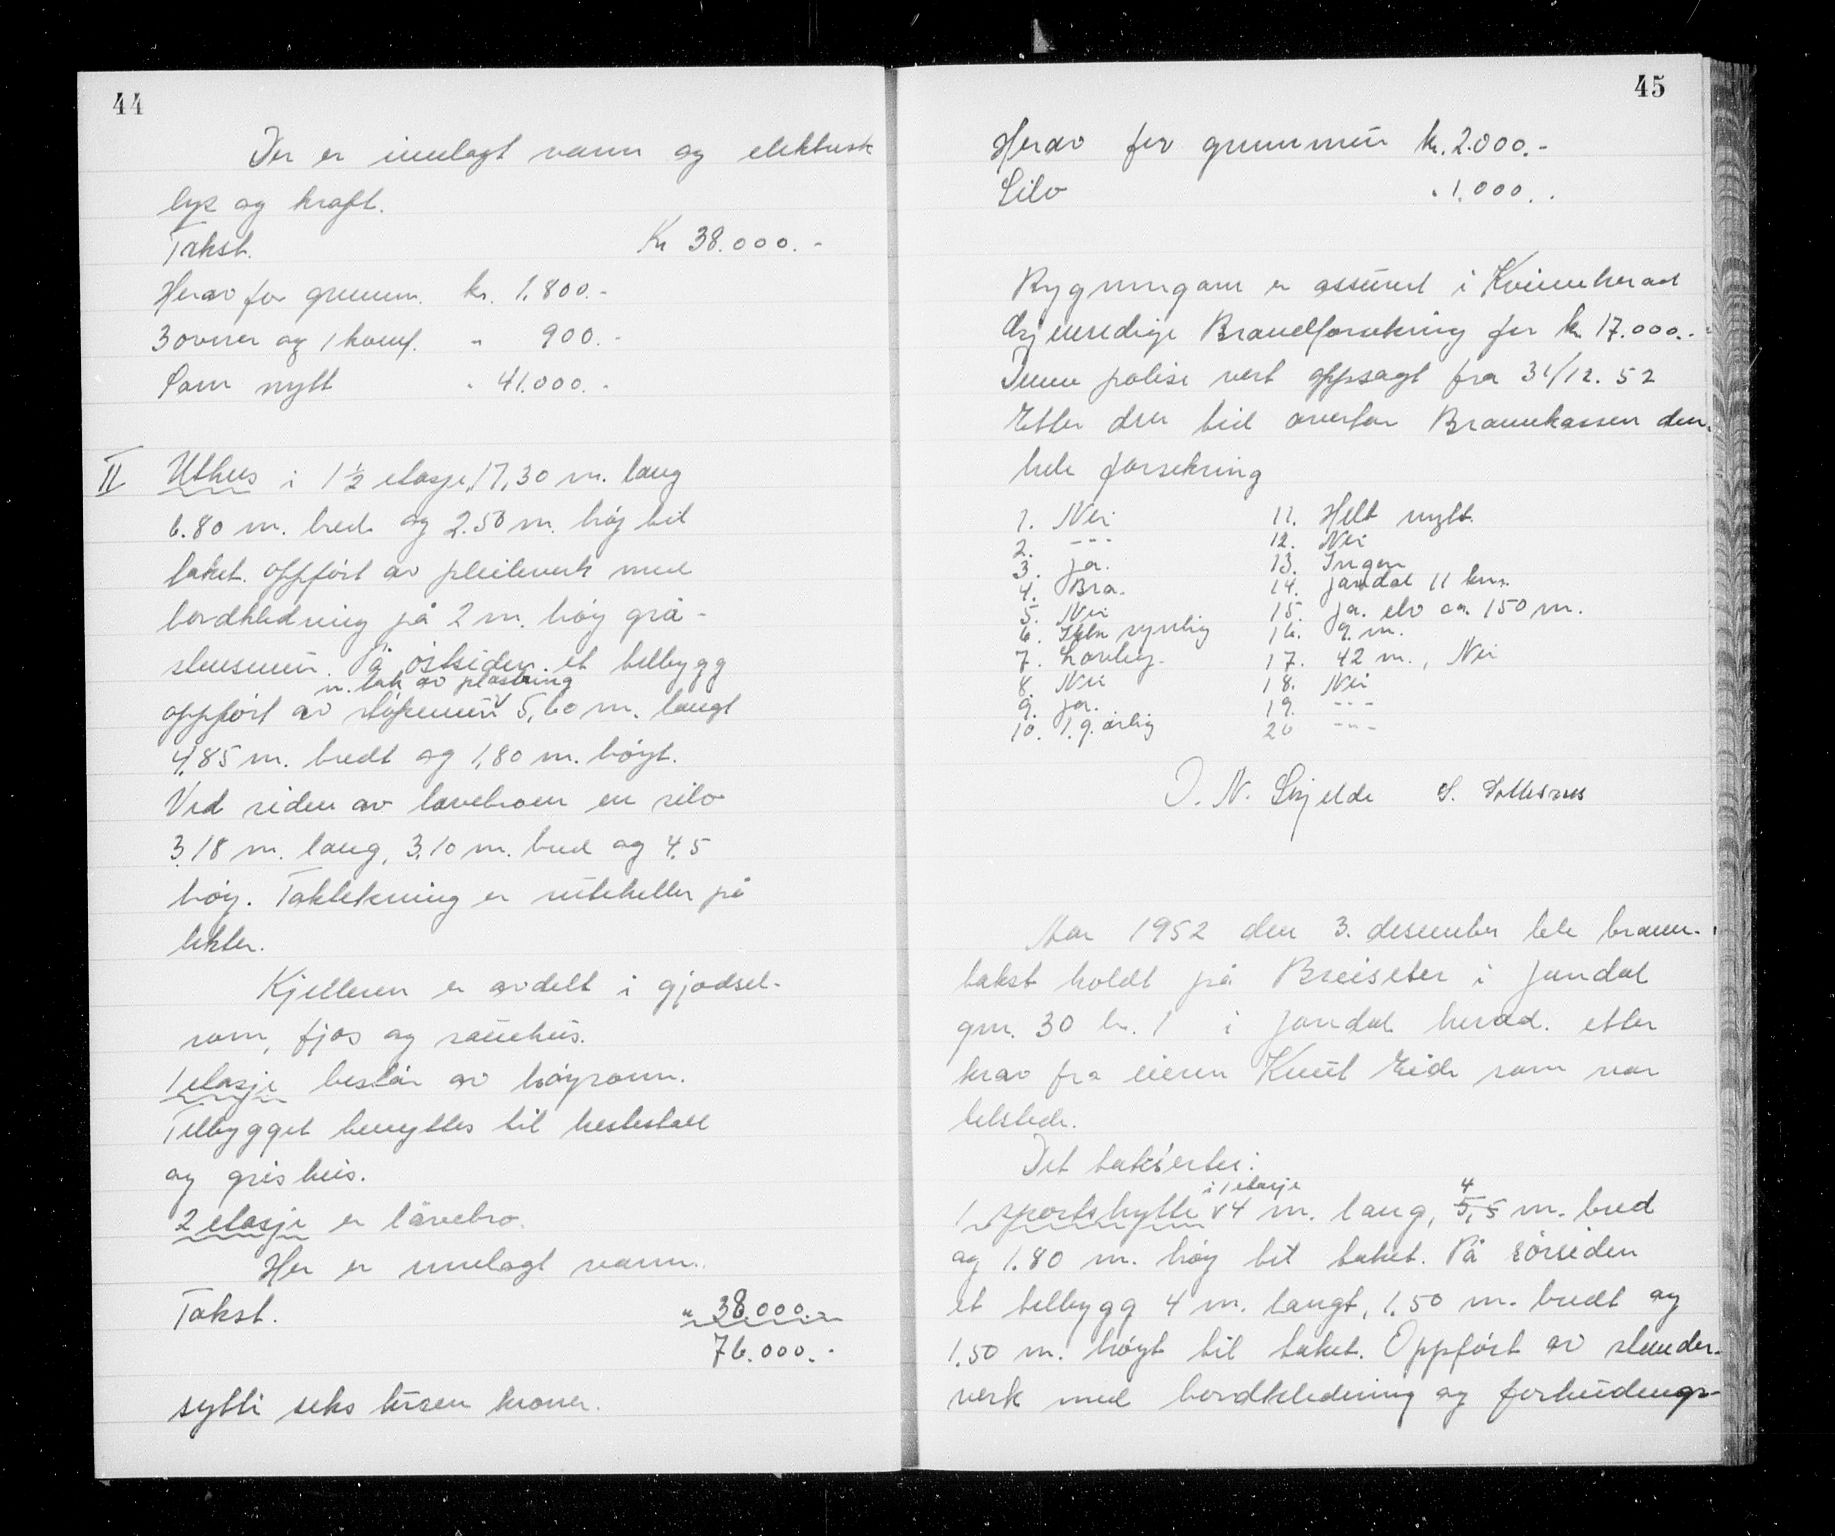 44
Der er innlagt vann og elektrisk
lys og kraft.
Takst. Kr 38.000.-
Herav for grunnm. kr. 1.800.-
3 ovner og 1 komf. " 900.-
Som nytt " 41.000.-
II Uthus i 1 1/2 etasje, 17,30 m. lang
6.80 m. bred og 2.50 m. høg til
taket. Oppført av
bordkledning på 2 m. høg grå-
steinsmur. På østsiden et tilbygg
m. tak av
oppført av støpemur 5,60 m. langt
4,85 m. bredt og 1,80 m. høgt.
Ved siden av låvebroen en silo
3,18 m. lang, 3,10 m. bred og 4,5
høg. Taktekning er ruteheller på
lekter.
Kjelleren er avdelt i gjødsel-
rom, fjøs og sauehus.
1 etasje består av høyrom.
Tilbygget benyttes til hestestall
og grishus.
2 etasje er låvebro.
Her er innlagt vann.
Takst. " 38.000.-
76.000.-
sytti seks tusen kroner.
45
Herav for grunnmur kr. 2.000.-
Silo " 1.000.-
Bygningane er assurert i Kvinnherad
Gjensidige Brandforsikring for kr 17.000.-
Denne polise vert oppsagt fra 31/12. 52
Etter den tid overtar Brannkassen den
hele forsikring
1. Nei 11. Helt nytt.
2. --- 12. Nei
3. ja. 13. Ingen
4. Bra. 14. Jondal 11 km.
5. Nei 15. Ja. elv ca. 150 m.
6. Ikke synlig 16. 9 m.
7. Lovleg. 17. 42 m., Nei
8. Nei 18. Nei
9. ja. 19. ---
10. 1 g. årlig 20 ---
O. N. Skjelde S. Sollesnes
Aar 1952 den 3. desember ble brann-
takst holdt på Breiseter i Jondal
gnr. 30 br. 1 i Jondal herad. etter
krav fra eieren Knut Eide som var
tilstede.
Det taksertes:
i 1 etasje 4
1 sportshytte 4 m. lang, 5,5 m. bred
og 1.80 m. høg til taket. På sørsiden
et tilbygg 4 m. langt, 1,50 m. bredt og
1.50 m. høgt til taket. Oppført av stender-
verk med bordkledning og forhudnings-